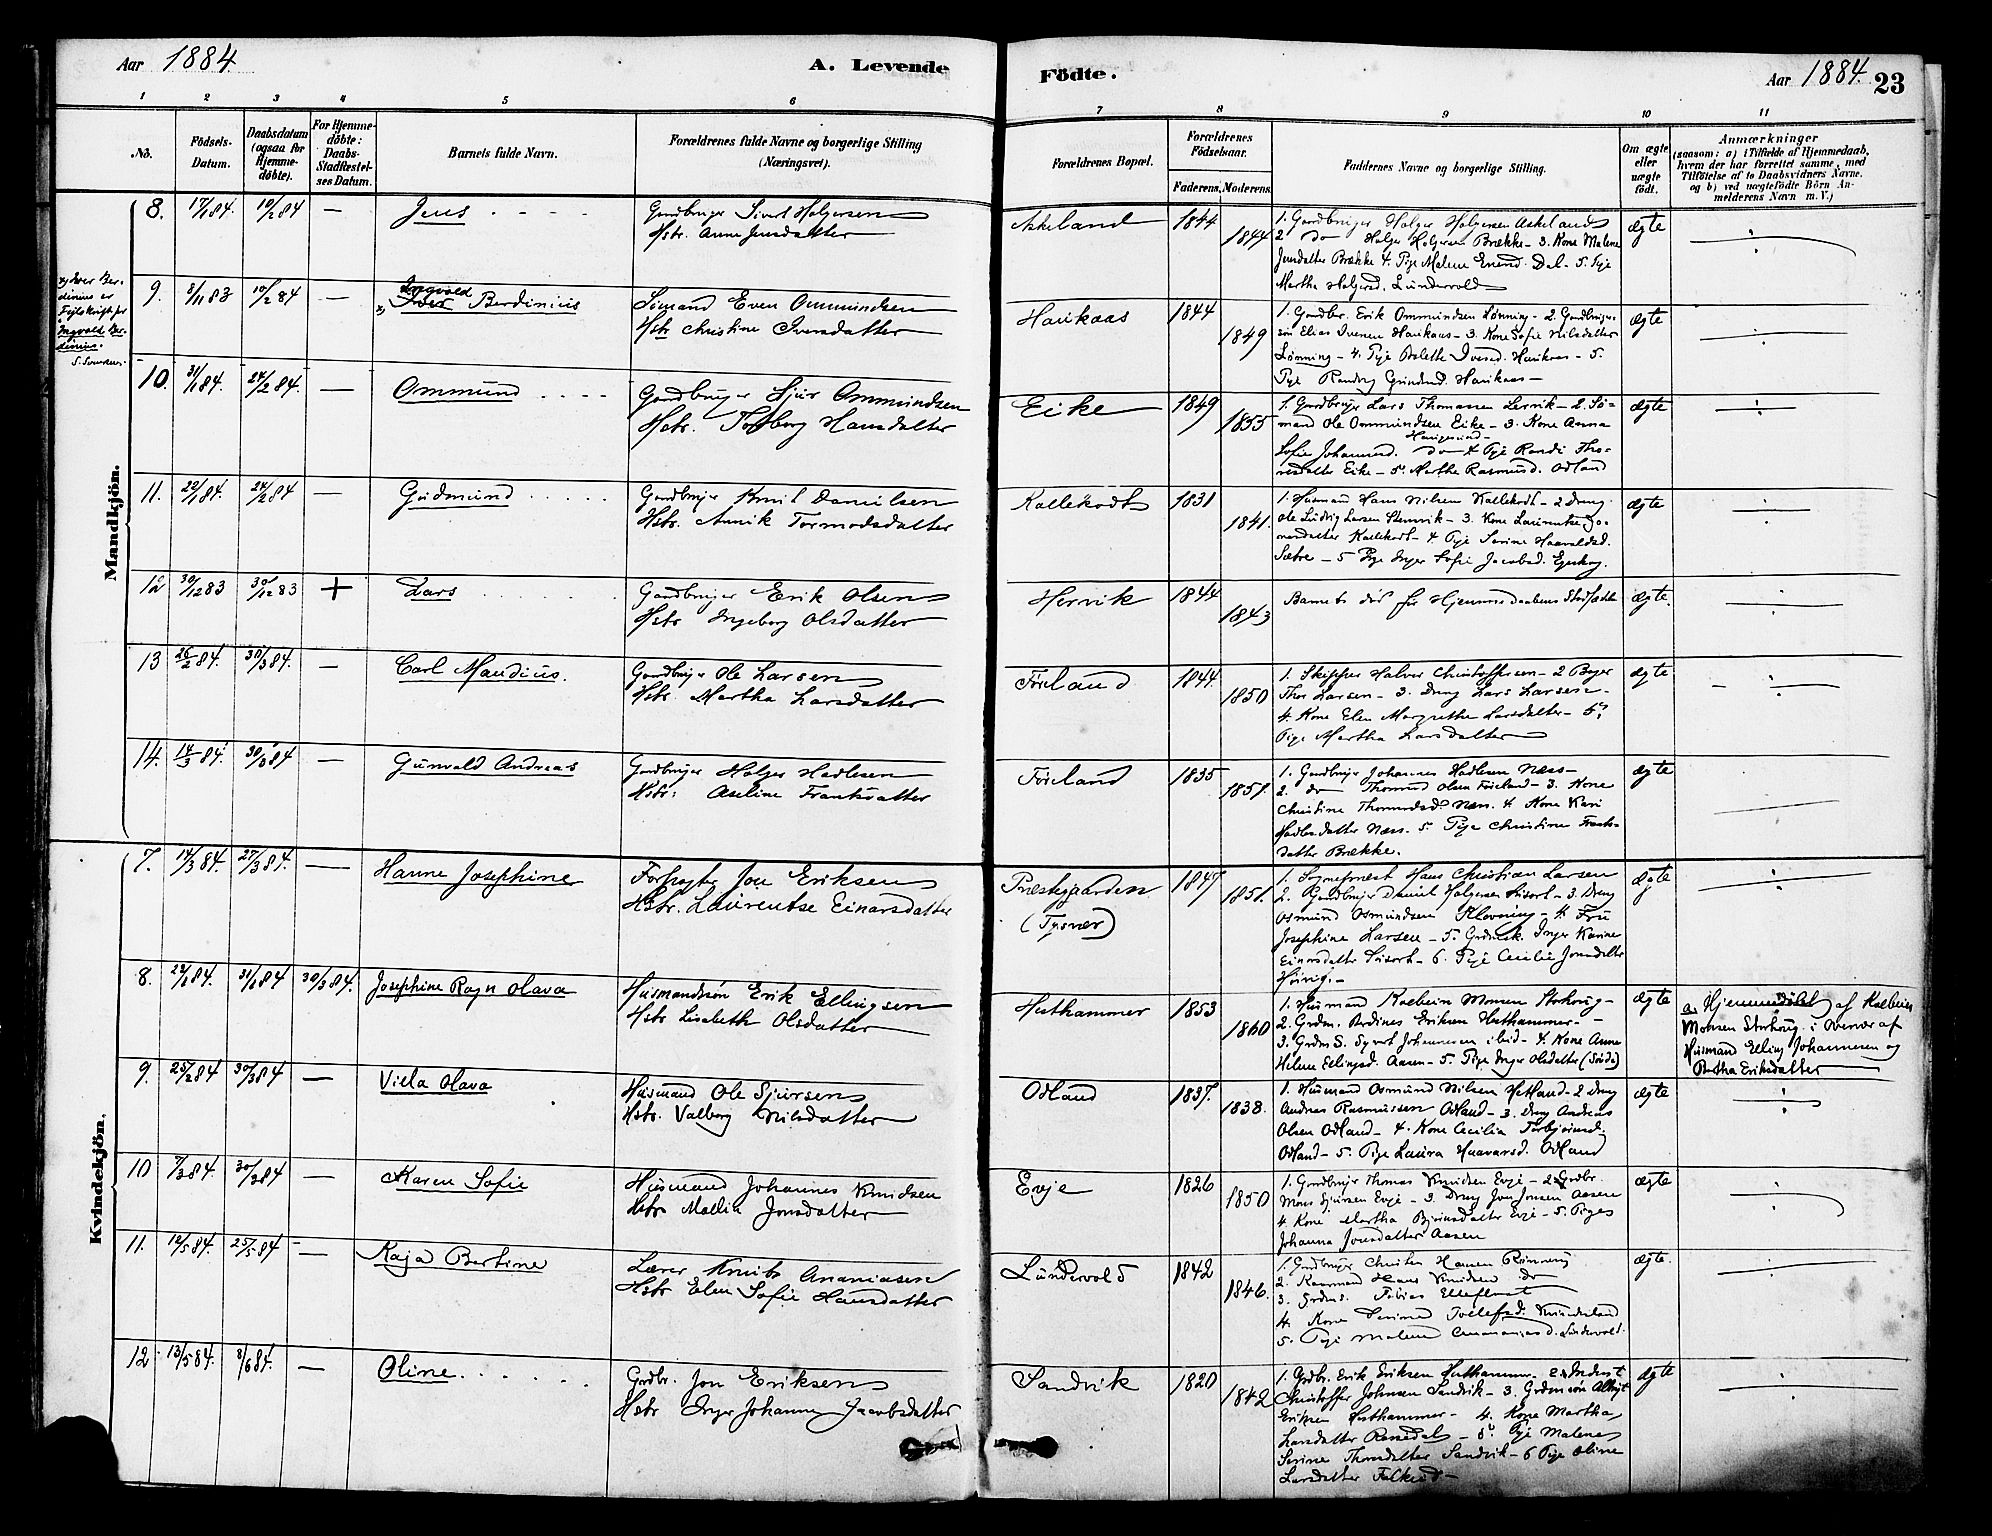 Aar 1884. A. Levende
Födte. Aar 1884. 23
1 2 3 4 5 6 7 8 9 10 11
No. Födsels-Datum. Daabsdatum (ogsaa for Hjemme-döbte). For Hjemme-döbte: Daabs-Stadfæstel-ses Datum. Barnets fulde Navn. Forældrenes fulde Navne og borgerlige Stilling (Næringsvei).
Forældrenes Bopæl. Forældrenes Födselsaar. Faderens. Moderens. Faddernes Navne og borgerlige Stilling. Om ægte eller uægte födt. Anmærkninger
(saasom: a) i Tilfælde af Hjemmedaab, hvem der har forrettet samme, med Tilföielse af to Daabsvidners Navne. og b) ved uægtefödte Börn An-melderens Navn m. V.)
Mandkjön.
8. 17/1 84. 10/2 84 — Jens Gaardbruger Sivert Holgersen
Hstr. Anne Jensdatter
Askeland 1844 1844
1. Gaardbruger Holger Holgersen Askeland
2 do Holger Holgersen Brække - 3. Kone Malene
Jensdatter Brække 4. Pige Malene Dal - 5. Pige
Martha Holgersd. Lundevold
ægte
x) Iver Ber-
dinius er
Fejlskrift for
Ingvald Ber-
dinius.
9. 8/11 83 10/2 84 — x) Ingvald Iver Berdinius Sömand Even Ommundsen
Hstr Christine Iversdatter
Haukaas 1844 1849
1. Gaardbr. Erik Ommundsen Lønning - 2. Gaardbruger-
sön Elias Ivesen Haukaas - 3. Kone Sofie Nilsdatter
Lönning - 4. Pige Bolette Ivesd. Haukaas - 5.
Pige Haukaas -
ægte
10. 31/1 84. 24/2 84. — Ommund Gaardbruger Sjur Ommundsen
Hstr. Torborg Hansdatter
Eike 1849 1855
1. Gaardbruger Lars Thomassen Lervik - 2. Sö-
mand Ole Ommundsen Eike - 3. Kone Anna
Sofie Johannesd. do 4 Pige Randi Tho-
Eike - 5. Martha Rasmusd. Odland
ægte
11. 22/1 84. 24/2 84 — Gudmund Gaardbruger Knut Danielsen
Hstr. Annik Tormodsdatter
Kallekodt 1831 1841.
1. Husmand Hans Nilsen Kallekodt - 2 Dreng
Ole Ludvig Larsen Stenvik - 3. Kone Laurentse Jo-
Kallekodt - 4 Pige Serine Haavaldsd.
Sætre - 5 Pige Inger Sofie Jacobsd.
ægte
12 30/12 83 30/12 83 + Lars Gaardbruger Erik Olsen
Hstr Ingeborg Olsdatter
Hervik 1844 1843
Barnets död för Hjemmedaabens Stadfæstelse
ægte.
13 26/2 84. 30/3 84. — Carl Maudius. Gaardbruger Ole Larsen
Hstr. Martha Larsdatter
Föreland 1844 1850
1. Skipper Halvor Christoffersen - 2 Böger
Thor Larsen - 3. Dreng Lars Larsen -
4. Kone Elen Margrethe Larsdatter - 5.
Pige Martha Larsdatter
ægte
14. 14/3 84. 30/3 84 — Gunvald Andreas Gaardbruger Holger Hadlesen
Hstr: Aseline Franksdatter
Föreland 1835 1851.
1. Gaardbruger Johannes Hadlesen Næss -
2. do Thormod Olsen Föreland - 3. Kone
Christine Thormodsd. Næss. 4 Kone Kari
Hadlesdatter Næss. 5. Pige Christine Franks-
datter Brække.
ægte
Kvindekjön.
7. 14/3 84. 27/3 84. — Hanne Josephine Forpagter Jon Eriksen
Hstr. Laurentse Einarsdatter
Præstegaarden (Tysvær) 1847 1851.
1. Sognepræst Hans Christian Larsen
2. Gaardbruger Daniel Holgersen - 3. Dreng
Osmund Osmundsen - 4. Fru
Josephine Larsen - 5. Inger Karine
Einarsdatter - 6. Pige Cecilie Jonsdatter
ægte
8. 31/1 84 30/3 84. Josephine Ragn Olava Husmandssön Erik Ellingsen
Hstr Lisabeth Olsdatter
Hesthammer 1853 1860
1. Husmand Kolbein Monsen Storhoug -
2. Grdm. Berdines Eriksen Hesthammer -
3. Grdm S. Syvert Johannesen ibid - 4. Kone Anne
Helene Ellingsd. Aasen - 5. Pige Inger Olsdatter
ægte
a. Hjemmedöbt af Kolbein
Monsen Storhoug. i Overvær af
Husmand Elling Johannesen og
Bertha Eriksdatter
9. 25/2 84 30/3 84 — Viela Olava Husmand Ole Sjursen
Hstr. Valborg Nilsdatter
Odland 1837. 1838.
1. Husmand Osmund Nilsen Hetland - 2 Dreng
Andreas Rasmussen Odland - 3. Dreng Andreas
Olsen Odland - 4. Kone Cecilia
Odland - 5 Pige Laura Haavarsd. Odland
ægte
10 7/3 84. 30/3 84 — Karen Sofie Husmand Johannes Knudsen
Hstr Mallin Jonsdatter
Evje 1826 1850
1. Gaardbruger Thomas Knudsen Evje - 2 Grdbr.
Mons Sjursen Evje - 3. Dreng Jon Jonsen Aasen
4. Kone Martha Evje - 5. Pige
Johanna Jonsdatter Aasen
ægte
11. 12/5 84. 25/5 84 — Kaja Bertine Lærer Knut Ananiasen
Hstr Elen Sofie Hansdatter
Lundevold 1842 1846.
1. Gaardbruger Hansen
2. Hans Knudsen do
3. Tobias
4. Kone Serine
5. Pige Malene Ananiasd. Lundevold.
ægte.
12 13/5 84. 8/6 84. — Oline Grdbr. Jon Eriksen
Hstr Inger Johanne Jacobsdatter
Sandvik 1820 1842
1. Grdbr. Erik Eriksen Hesthammer - 2 Inderst
Christoffer Johnsen Sandvik - 3. Grdmsön
Eriksen Hesthammer - 4. Kone Martha
Larsdatter - 5. Pige Malene
Serine Thorsdatter Sandvik - 6 Pige Oline
Larsdatter
ægte